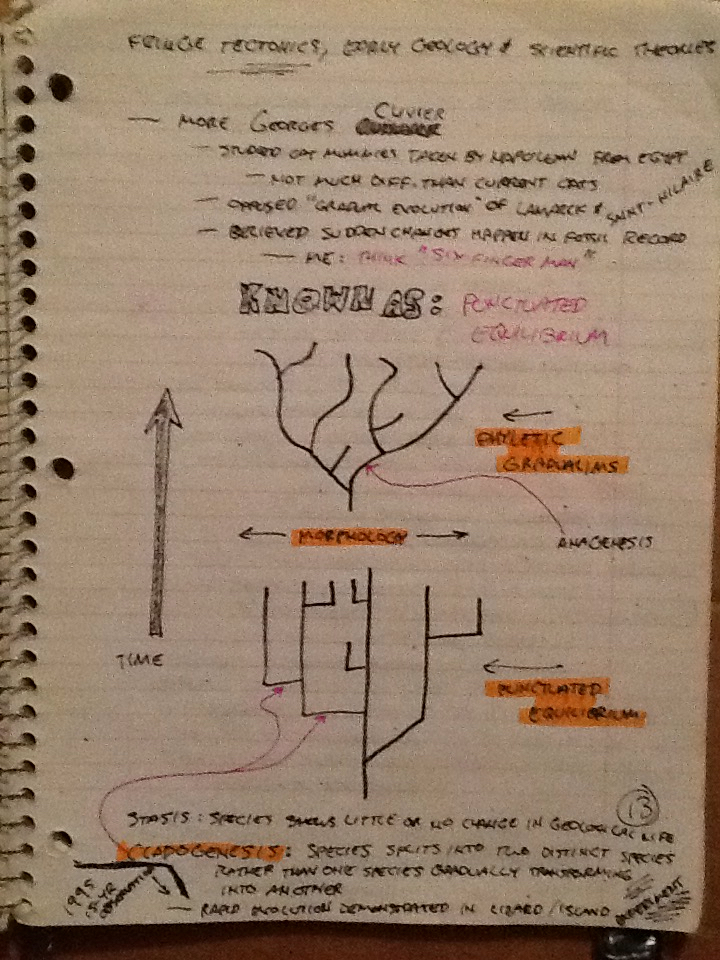 FRINGE TECTONICS, EARLY GEOLOGY & SCIENTIFIC THEORIES
— MORE GEORGES CUVIER
— STUDIED CAT MUMMIES TAKEN BY NAPOLEAN FROM EGYPT
— NOT MUCH DIFF. THAN CURRENT CATS
— OPPOSED "GRADUAL EVOLUTION" OF LAMARCK & SAINT-HILAIRE
— BELIEVED SUDDEN CHANGES HAPPEN IN FOSSIL RECORD
— ME: THINK "SIX FINGER MAN"
KNOWN AS: PUNCTUATED
EQUILIBRIUM
PHYLETIC
GRADUALIMS
MORPHOLOGY
ANAGENESIS
TIME
PUNCTUATED
EQUILIBRIUM
13
STASIS: SPECIES SHOWS LITTLE OR NO CHANGE IN GEOLOGICAL LIFE
CLADOGENESIS: SPECIES SPLITS INTO TWO DISTINCT SPECIES
RATHER THAN ONE SPECIES GRADUALLY TRANSFORMING
INTO ANOTHER
1995
15 YR
OBSERVATION
— RAPID EVOLUTION DEMONSTRATED IN LIZARD/ISLAND EXPERIMENT